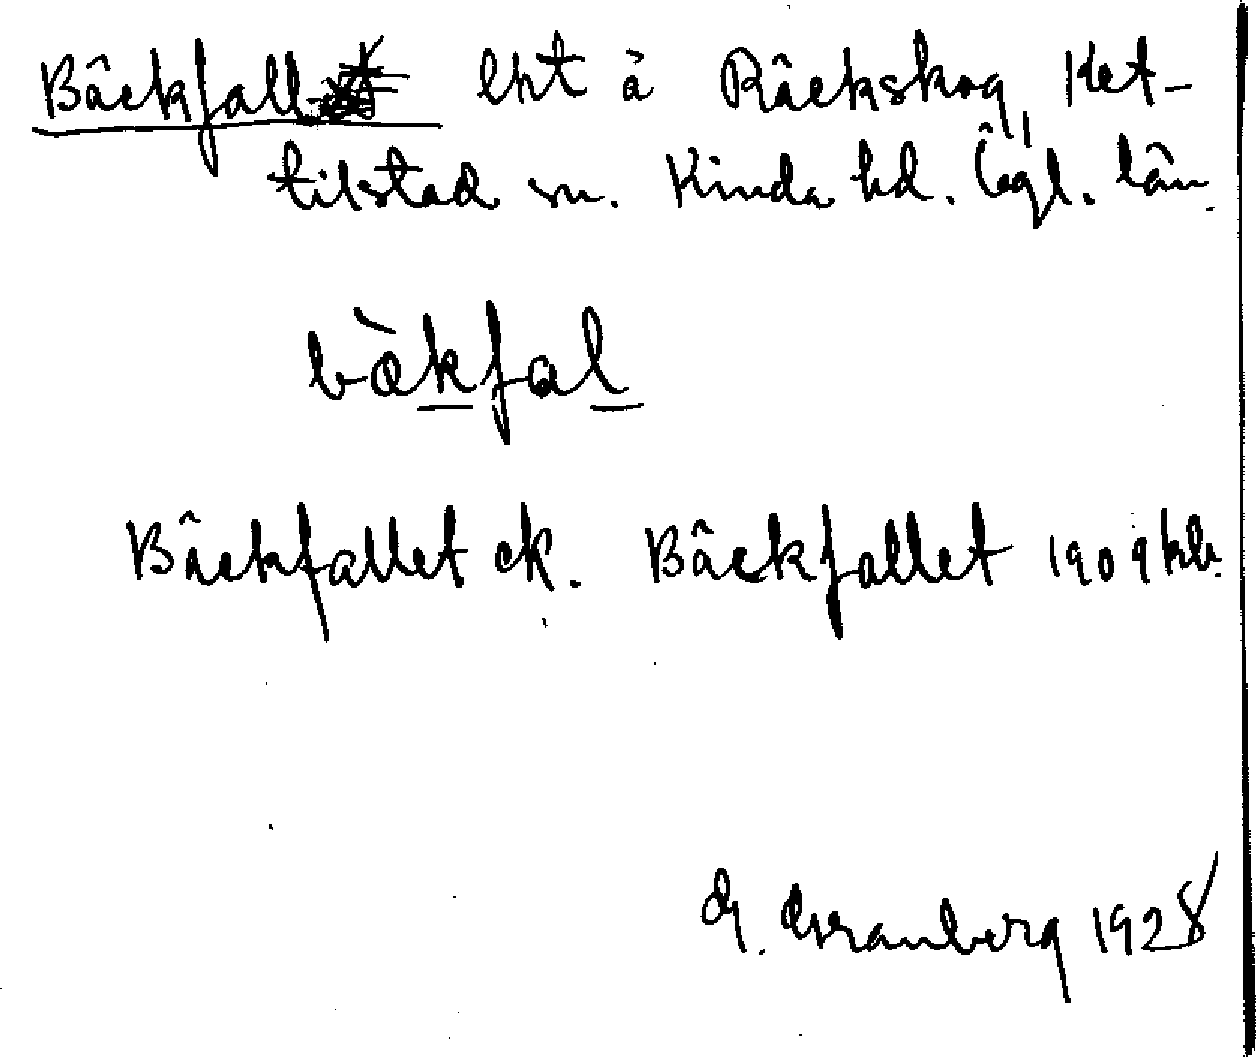 Bäckfall lht å Räckskog, Ket-
tilstad sn. Kinda hd. Ögl. län.
bàkfal
Bäckfallet ek. Bäckfallet 1909 kb.
G. Granberg 1928